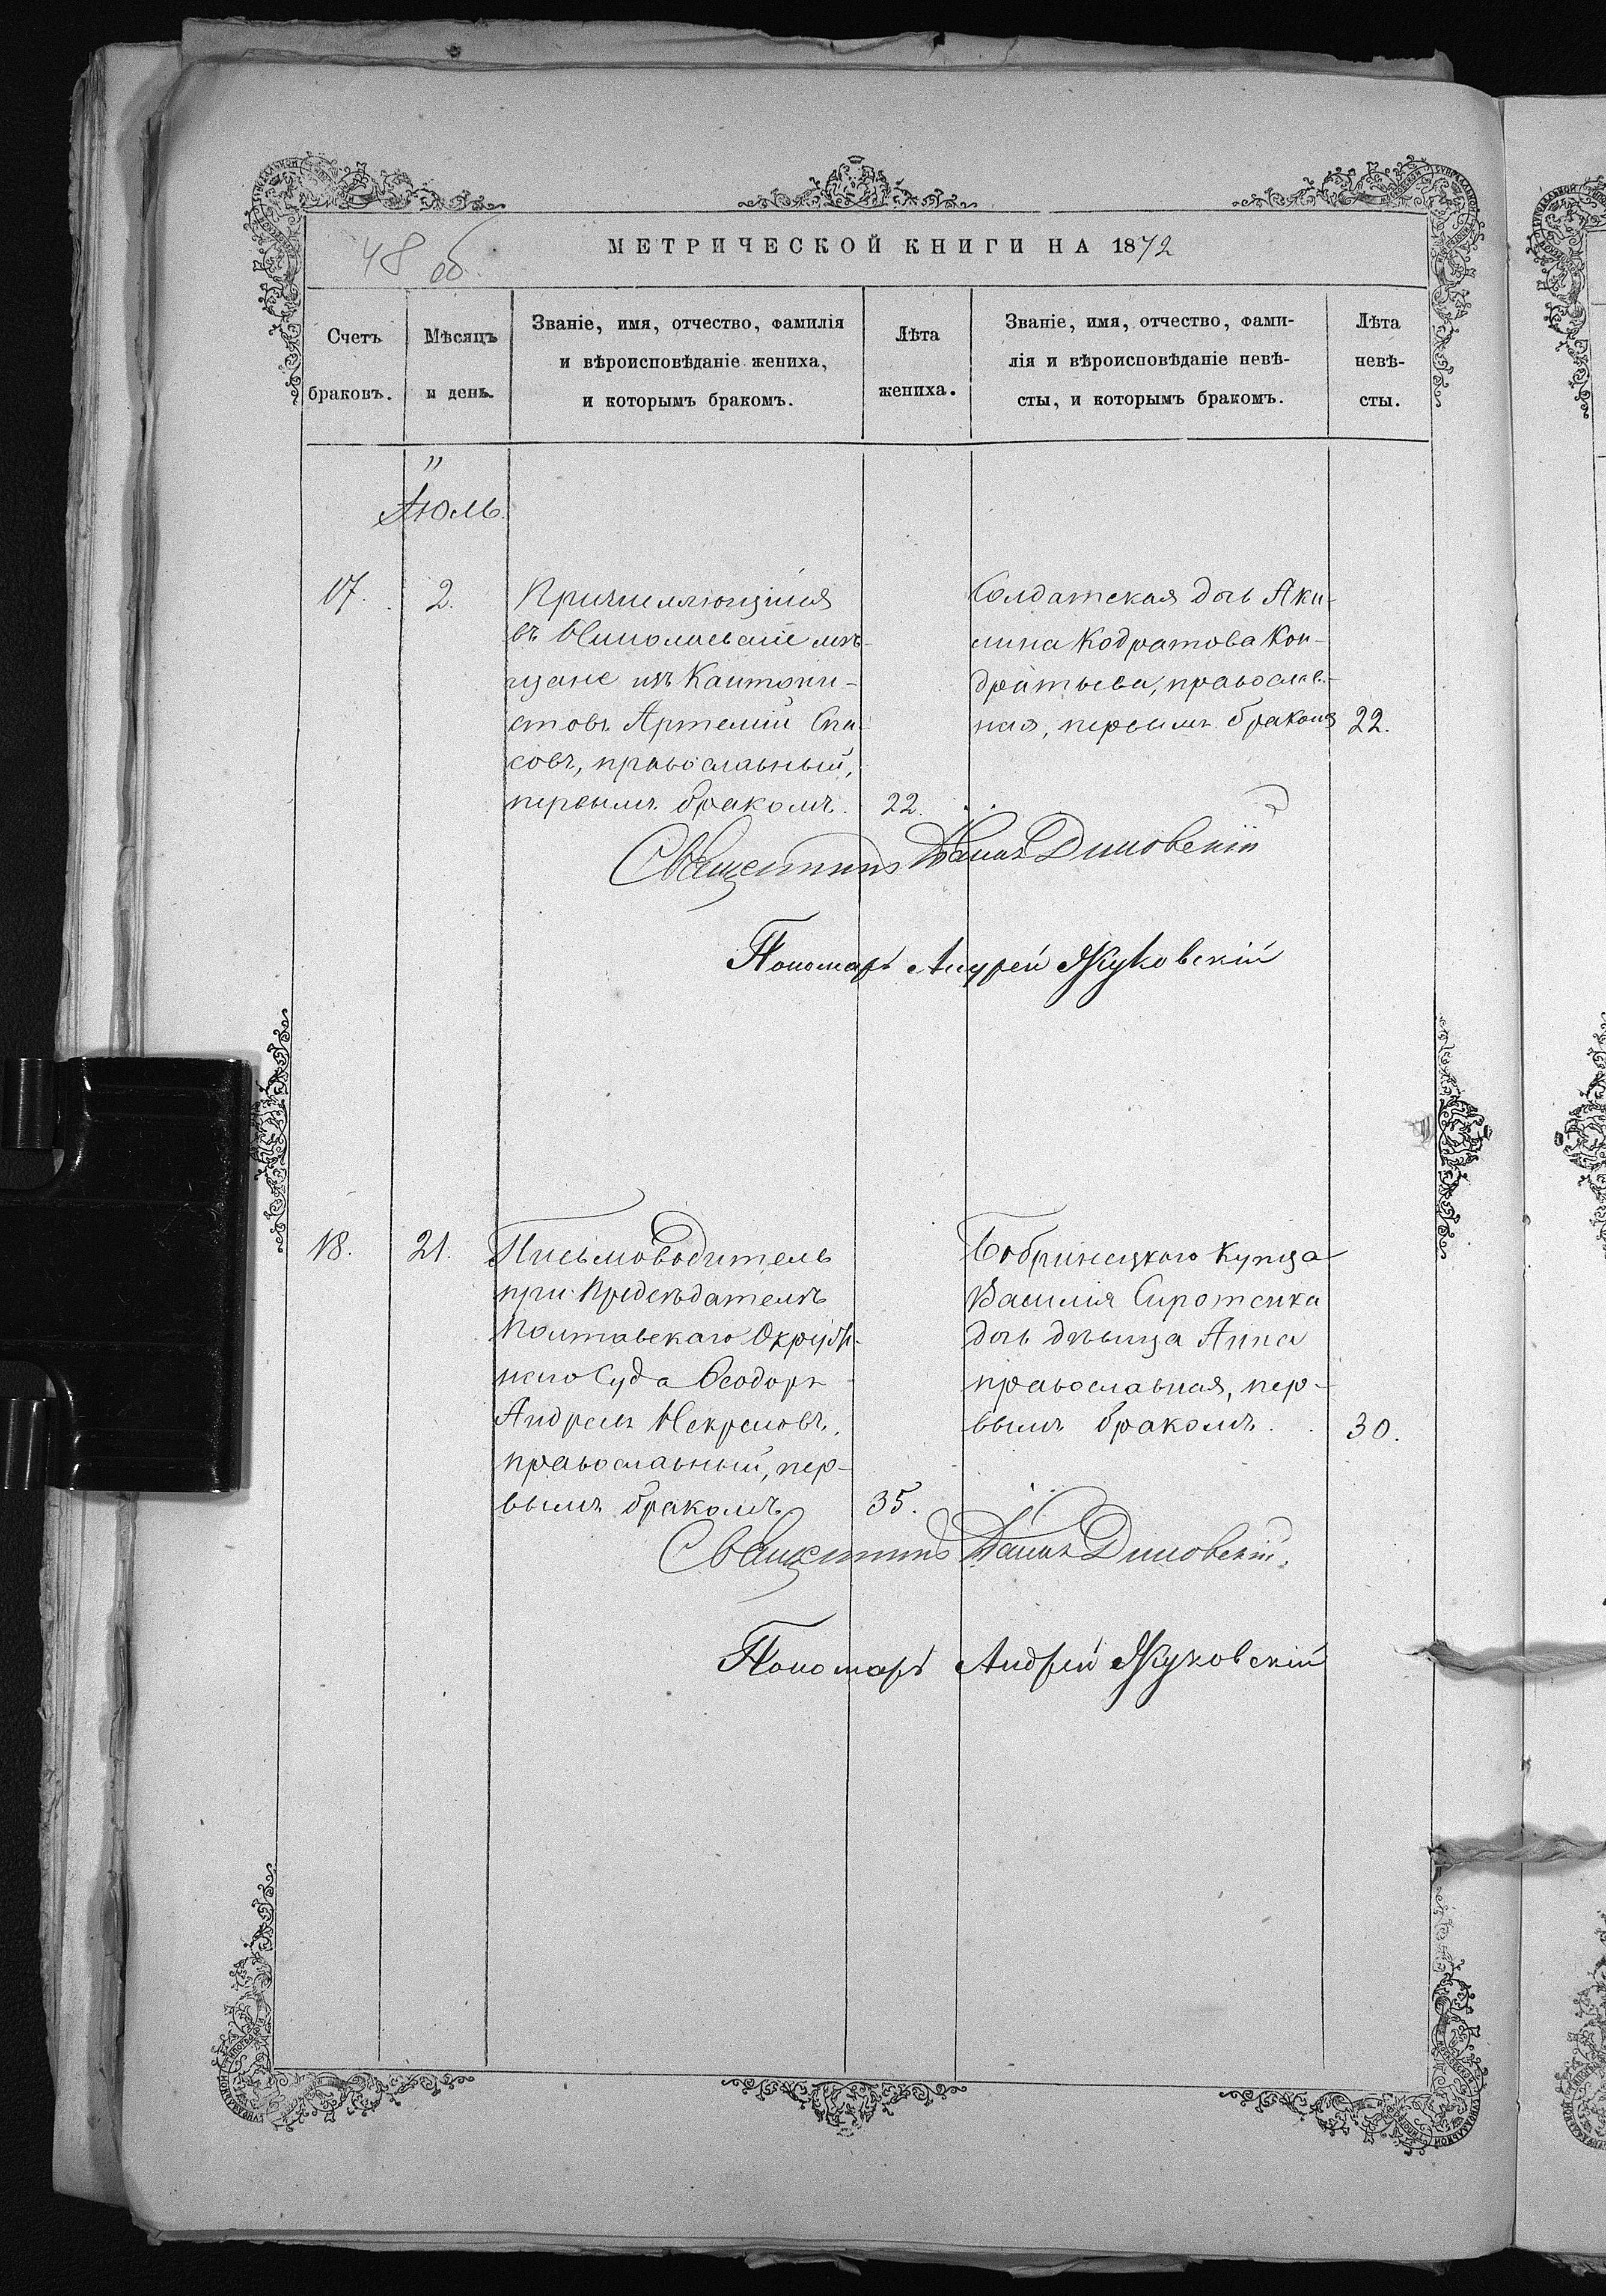 48 об.
МЕТРИЧЕСКОЙ КНИГИ НА 1872
Счетъ браковъ.
Мѣсяцъ и день.
Званіе, имя, отчество, фамилія
и вѣроисповѣданіе жениха,
и которымъ бракомъ.
Лѣта жениха.
Званіе, имя, отчество, фами-
лія и вѣроисповѣданіе невѣ-
сты, и которымъ бракомъ.
Лѣта невѣ-
сты.
Іюль.
17.
2.
Причисляющійся
въ Николаевскіе мѣ-
щане изъ Кантони-
стовъ Артемій Спа-
совъ, православный,
первымъ бракомъ.
22.
Солдатская дочь Аки-
лина Кодратова Кон-
дратьева, православ-
ная, первымъ бракомъ
22.
Священникъ Діновскій
Пономарь Андрей Жуковскій
18.
21.
Письмоводитель
при Предсѣдателѣ
Полтавскаго Окруж-
наго Суда Ѳеодоръ
Андреевъ Некрасовъ,
православный, пер-
вымъ бракомъ
35.
Бобринецкаго купца
Василія Сиротенка
дочь дѣвица Анна
православная, пер-
вымъ бракомъ.
30.
Священникъ Діновскій.
Пономарь Андрей Жуковскій